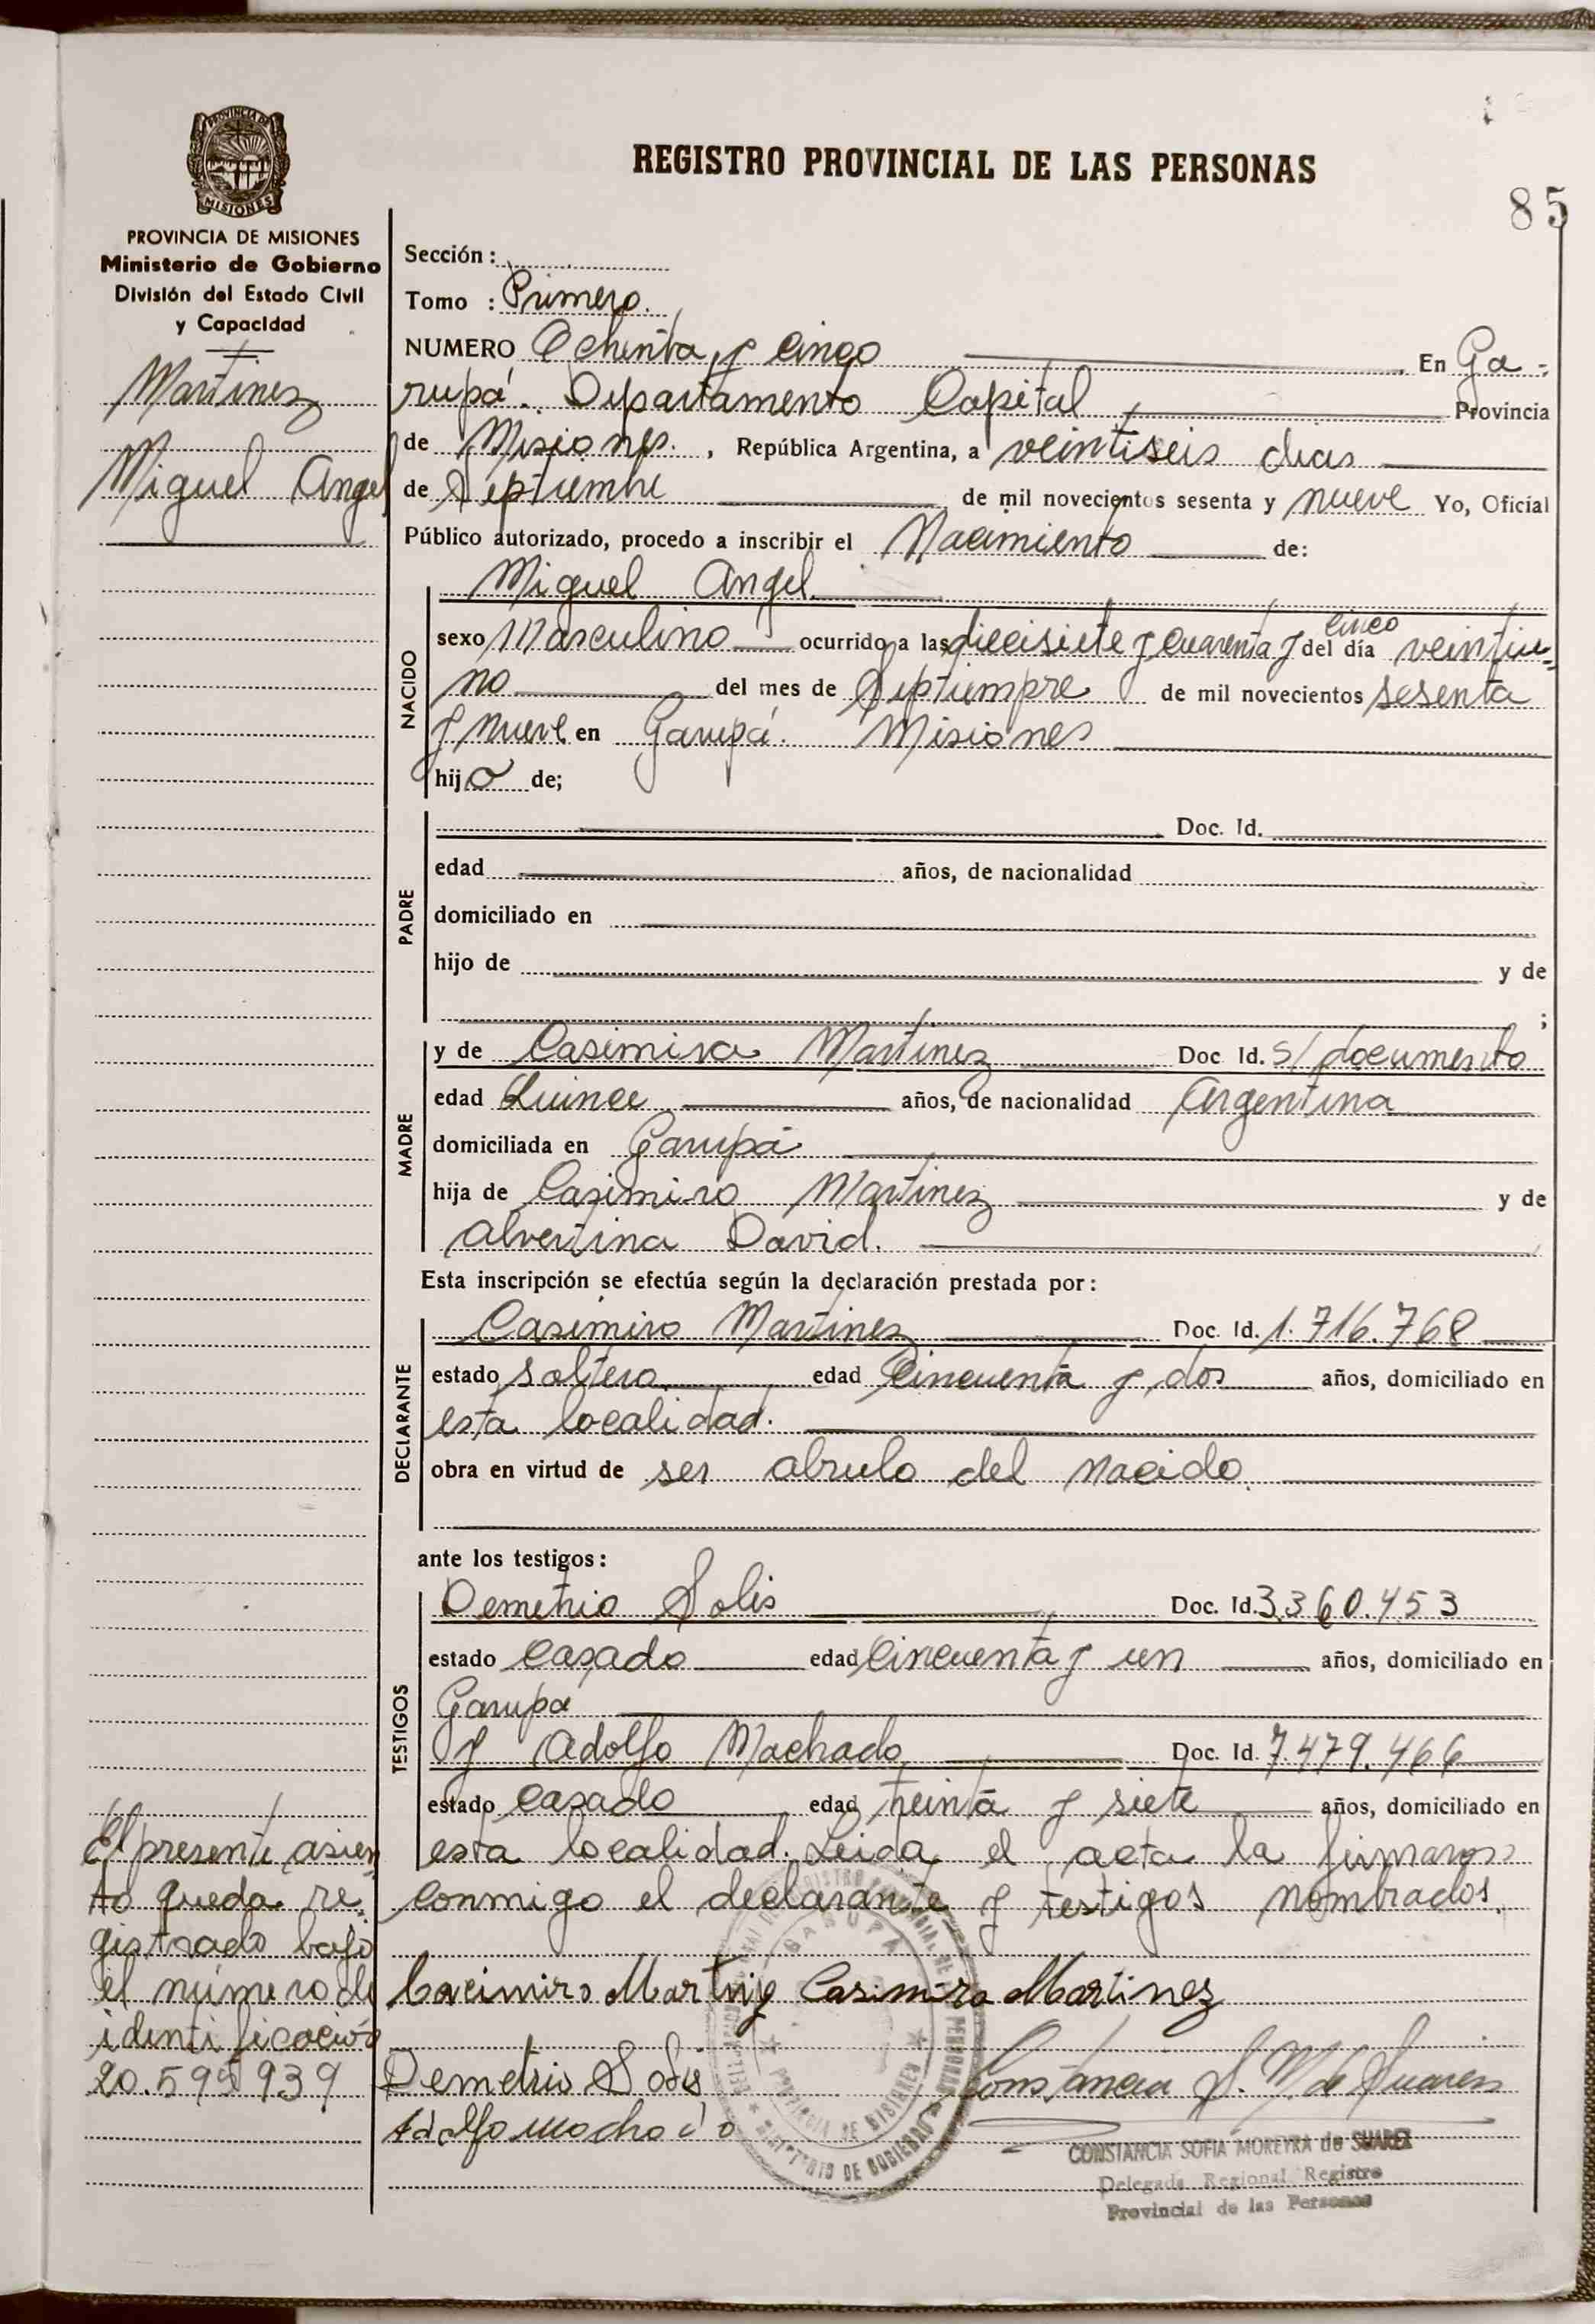 PROVINCIA DE MISIONES
MISIONES
PROVINCIA DE MISIONES
Ministerio de Gobierno
División del Estado Civil
y Capacidad
Martinez
Miguel Angel
REGISTRO PROVINCIAL DE LAS PERSONAS
85
Sección :
Tomo : Primero.
NUMERO Ochenta y cinco En Ga-
rupá. Departamento Capital Provincia
de Misiones. , República Argentina, a veintiseis dias
de Septiembre de mil novecientos sesenta y nueve Yo, Oficial
Público autorizado, procedo a inscribir el Nacimiento de:
NACIDO
Miguel Angel
sexo Masculino ocurrido a las diecisiete y cuarenta y cinco del día veintiu-
no del mes de Septiempre de mil novecientos sesenta
y nueve en Garupá. Misiones
hijo de;
PADRE
Doc. Id.
edad años, de nacionalidad
domiciliado en
hijo de y de
;
MADRE
y de Casimira Martinez Doc Id. s/documento
edad Quince años, de nacionalidad Argentina
domiciliada en Garupá
hija de Casimiro Martinez y de
Alvertina David.
Esta inscripción se efectúa según la declaración prestada por:
DECLARANTE
Casimiro Martinez Doc. Id. 1.716.768
estado soltero edad Cincuenta y dos años, domiciliado en
esta localidad.
obra en virtud de ser abuelo del nacido.
ante los testigos:
TESTIGOS
Demetrio Solis Doc. Id. 3.360.453
estado casado edad Cincuenta y un años, domiciliado en
Garupá
y Adolfo Machado Doc. Id. 7.479.466
estado casado edad treinta y siete años, domiciliado en
esta localidad. Leida el acta la firmaron
conmigo el declarante y testigos nombrados.
El presente asien-
to queda re-
gistrado bajo
el número de
identificación
20.595939
Casimiro Martinez Casimira Martinez
Demetrio Solis Constancia S. M. de Suarez
Adolfo Machado
CONSTANCIA SOFIA MOREYRA de SUAREZ
Delegada Regional Registro
Provincial de las Personas
GARUPA
PROVINCIA DE MISIONES
MINISTERIO DE GOBIERNO